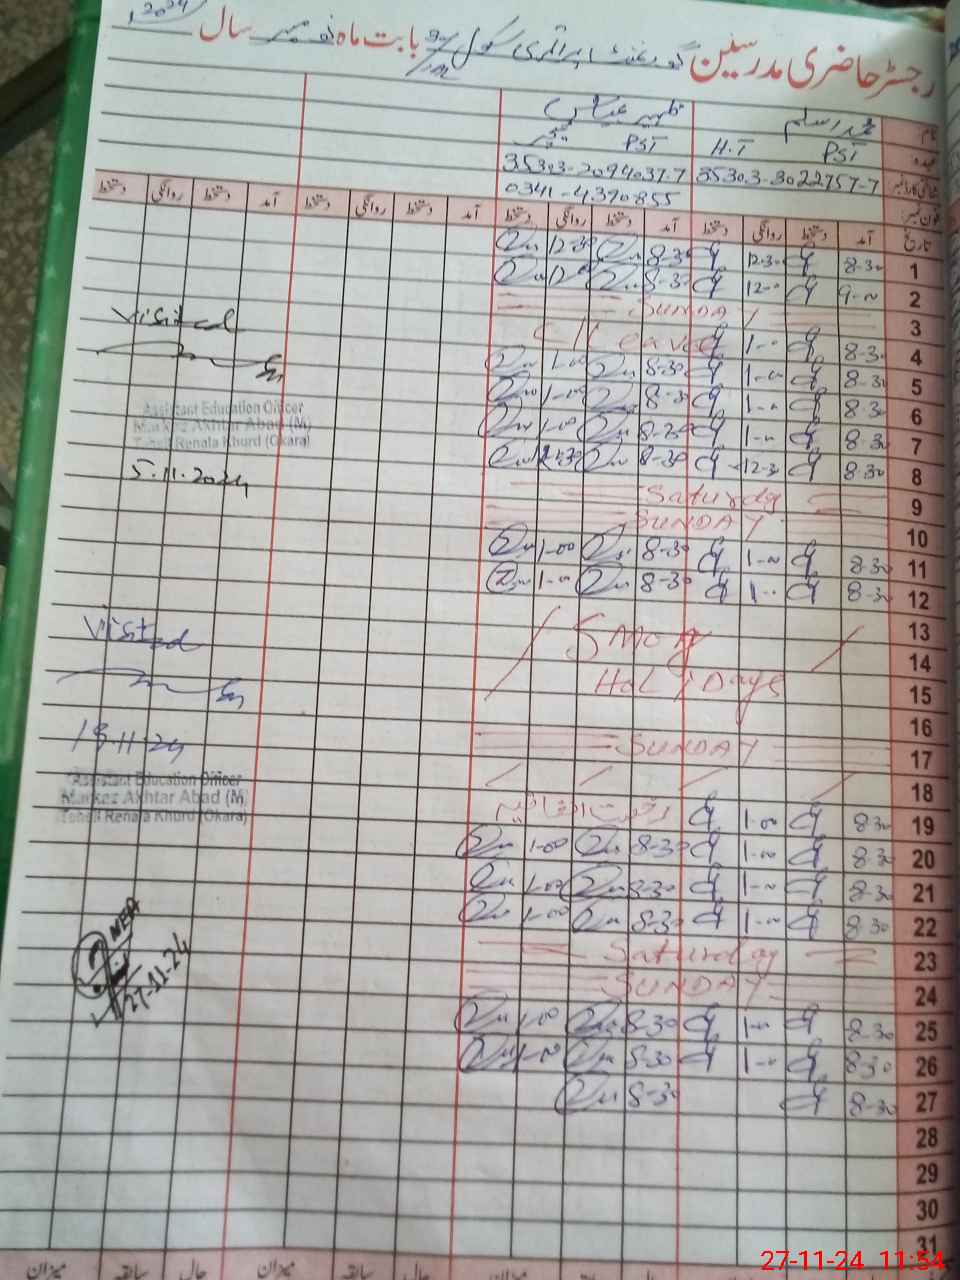 رجسٹر حاضری مدرسین گورنمنٹ پرائمری سکول بابت ماہ نومبر سال 2024
نام محمد اسلم ظہیر عباس
عہدہ PST H.T PST ٹیچر
شناختی کارڈ نمبر 35303-3022757-7 35303-2094037-7
فون نمبر 0341-4390855
تاریخ آمد دستخط روانگی دستخط آمد دستخط روانگی دستخط آمد دستخط روانگی دستخط آمد دستخط روانگی دستخط
1 8-30 12-30 8-30 12-30
2 9-00 12-00 8-30
3 SUNDAY
4 8-30 1-00 C/Leave
5 8-30 1-00 8-30 1-00
6 8-30 1-00 8-30 1-00
7 8-30 1-00 8-30 1-00
8 8-30 12-30 8-30 12-30
9 Saturday
10 SUNDAY
11 8-30 1-00 8-30 1-00
12 8-30 1-00 8-30 1-00
13 Smog
14
15 Holy Days
16
17 SUNDAY
18
19 8-30 1-00 رخصت اتفاقیہ
20 8-30 1-00 8-30 1-00
21 8-30 1-00 8-30 1-00
22 8-30 1-00 8-30 1-00
23 Saturday
24 SUNDAY
25 8-30 1-00 8-30 1-00
26 8-30 1-00 8-30 1-00
27 8-30 8-30
28
29
30
31
Visited
Assistant Education Officer
Markez Akhtar Abad (M)
Tehsil Renala Khurd (Okara)
5.11.2024
Visited
19-11-24
Assistant Education Officer
Markez Akhtar Abad (M)
Tehsil Renala Khurd (Okara)
MEA
27-11-24
میزان سابقہ حال میزان سابقہ حال میزان
27-11-24 11:54